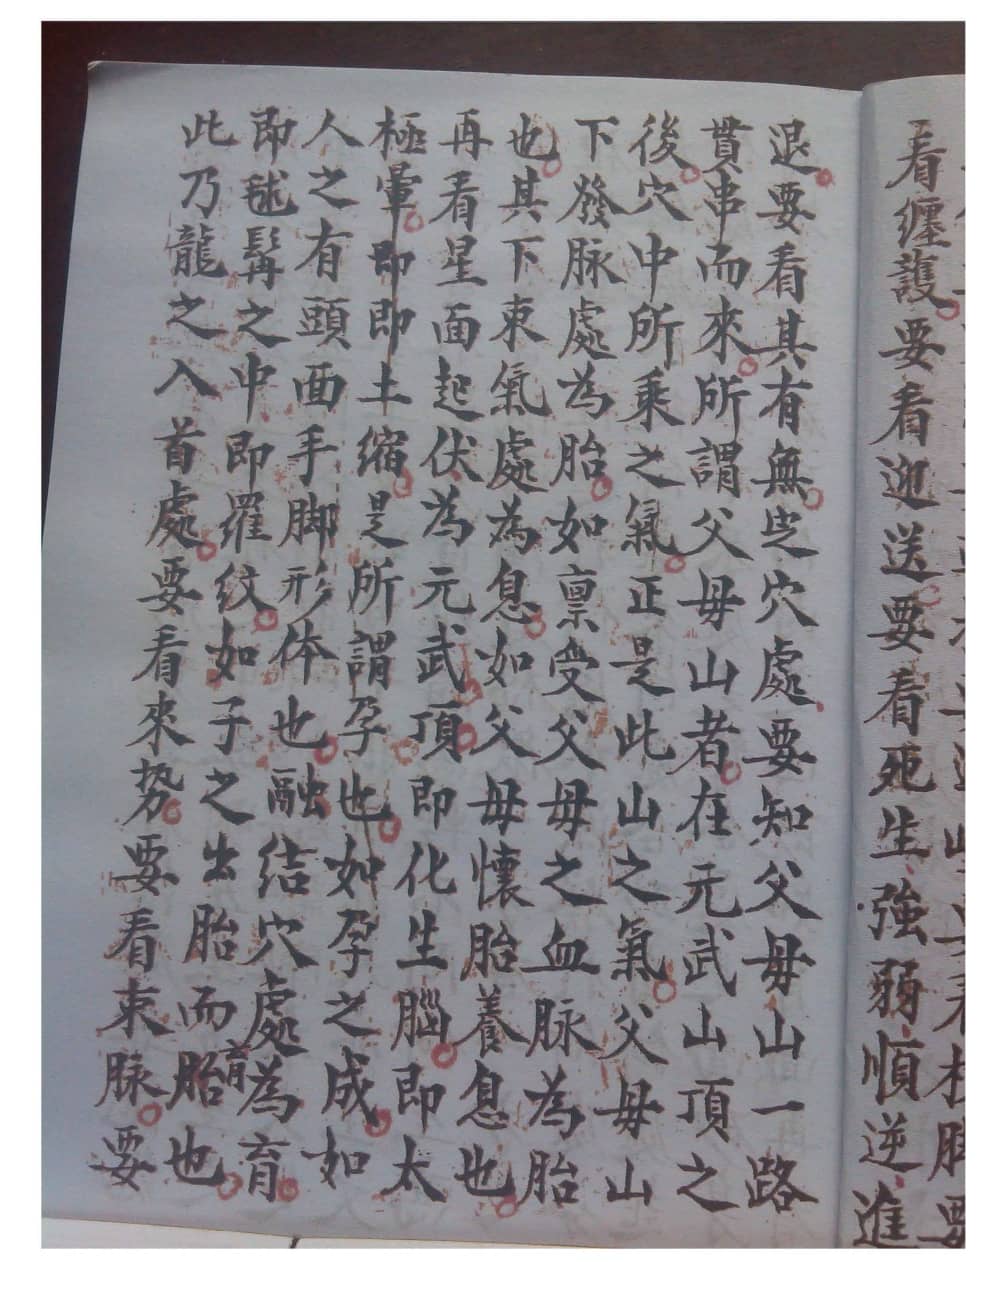 看纏護要看迎送要看死生強弱順逆進
退要看其有無岂穴處要知父母山一路
貫串而來所謂父母山者在元武山頂之
後穴中所乘之氣正是此山之氣父母山
下發脉處為胎如禀受父母之血脉為胎
也其下束氣處為息如父母懷胎養息也
再看星面起伏為元武頂即化生腦即太
極暈即即土縮是所謂孕也如孕之成如
人之有頭面手脚形体也融結穴處為育
即毬髯之中即羅紋如子之出胎而胎育也
此乃龍之入首處要看來势要看束脉要